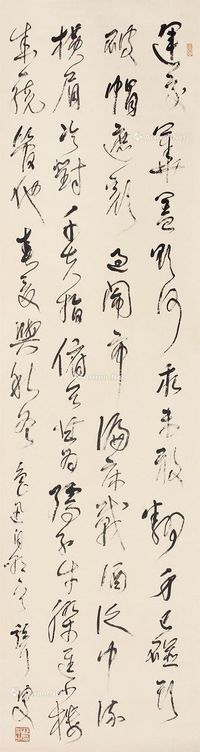 運交華蓋欲何求未敢翻身已碰頭
破帽遮顏過鬧市漏船載酒泛中流
橫眉冷對千夫指俯首甘為孺子牛躲進小樓
成一統管他春夏與秋冬 魯迅自嘲